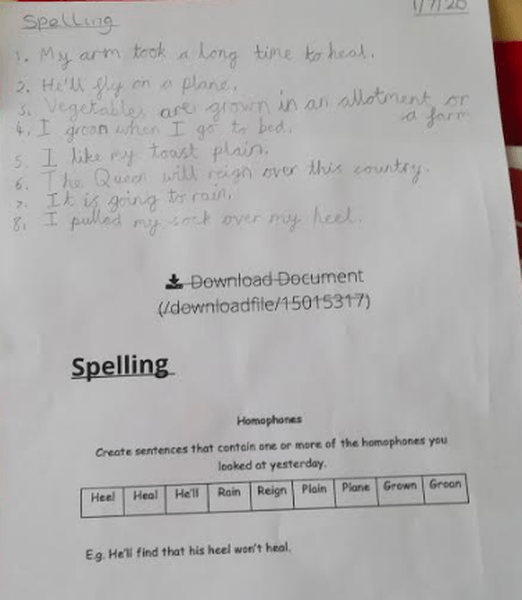 1/7/20
Spelling
1. My arm took a long time to heal.
2. He'll fly on a plane.
3. Vegetables are grown in an allotment or
a farm
4. I groan when I go to bed.
5. I like my toast plain.
6. The Queen will reign over this country.
7. It is going to rain.
8. I pulled my sock over my heel.
Download Document
(/downloadfile/15015317)
Spelling
Homophones
Create sentences that contain one or more of the homophones you
looked at yesterday.
Heel Heal He'll Rain Reign Plain Plane Grown Groan
E.g. He'll find that his heel won't heal.